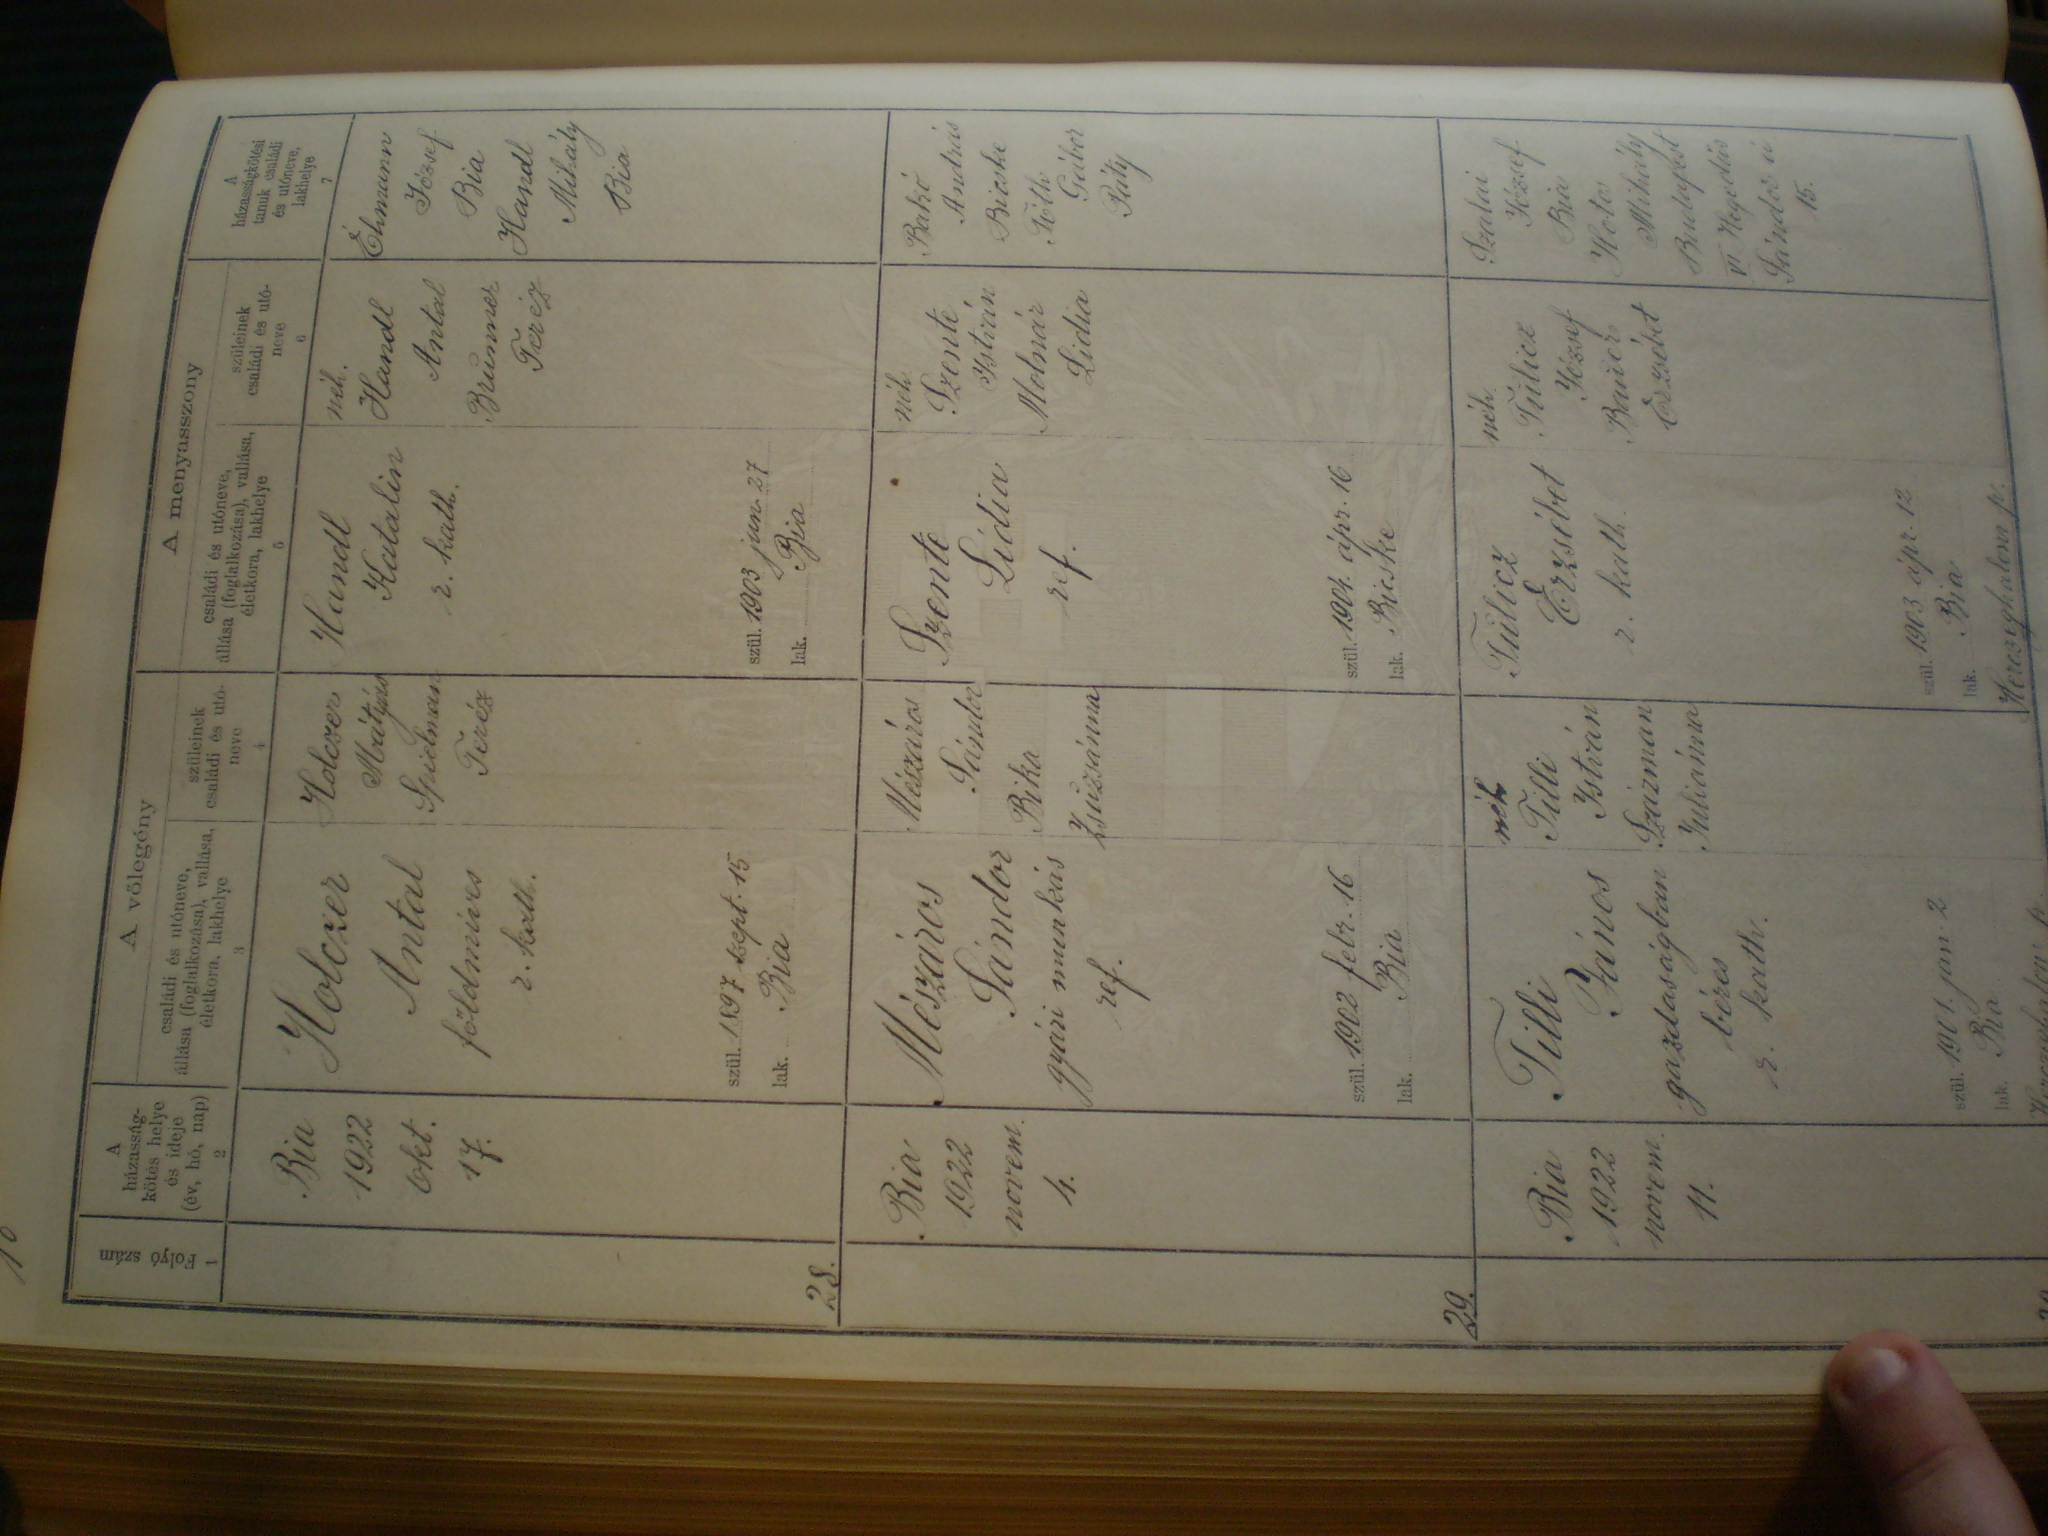 10
Folyó szám
1
A
házasság-
kötés helye
és ideje
(év, hó, nap)
2
A vőlegény
családi és utóneve,
állása (foglalkozása), vallása,
életkora, lakhelye
3
szüleinek
családi és utó-
neve
4
A menyasszony
családi és utóneve,
állása (foglalkozása), vallása,
életkora, lakhelye
5
szüleinek
családi és utó-
neve
6
A
házasságkötési
tanuk családi
és utóneve,
lakhelye
7
28.
Bia
1922
Okt.
17.
Holczer
Antal
földműves
r. kath.
szül. 1897 szept. 15
lak. Bia
Holczer
Mátyás
Spielman
Teréz
Handl
Katalin
r. kath.
szül. 1903 jun. 27
lak. Bia
néh.
Handl
Antal
Brunner
Teréz
Éhmann
József
Bia
Handl
Mihály
Bia
29.
Bia
1922
novem.
4.
Mészáros
Sándor
gyári munkás
ref.
szül. 1902 febr. 16
lak. Bia
Mészáros
Sándor
Bika
Zsuzsánna
Szente
Lídia
ref.
szül. 1904. ápr. 16
lak. Bicske
néh
Szente
István
Molnár
Lidia
Bakó
András
Bicske
Tóth
Gábor
Páty
Bia
1922
novem.
11.
Tilli
János
gazdaságban
béres
r. kath.
szül. 1901. jan. 2
lak. Bia
néh
Tilli
István
Százman
Julianna
Tülicz
Erzsébet
r. kath.
szül. 1903 ápr. 12
lak. Bia
Herczeghalom p.
néh
Tülicz
József
Bauer
Erzsébet
Szalai
József
Bia
Mihály
Budapest
VI Hegedűs
Sándor u
15.